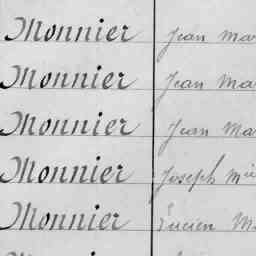 Monnier Jean Mar
Monnier Jean Ma
Monnier Jean Ma
Monnier Joseph
Monnier Lucien M